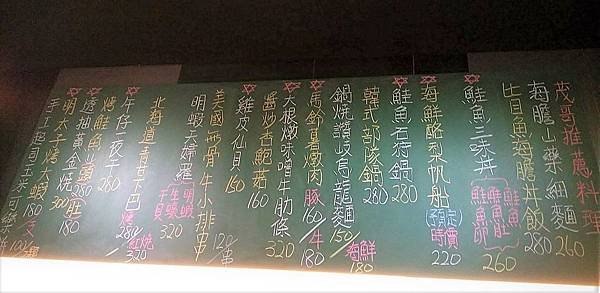 茂哥推薦料理
海膽山藥細麵 260
比目魚海膽丼飯 280
鮭魚三味丼 (鮭魚 鮭魚肚 鮭魚卵) 260
海鮮酪梨帆船 (預定) 時價 220
鮭魚石狩鍋 280
韓式部隊鍋 280
鍋燒讚岐烏龍麵 150/海鮮180
馬鈴薯燉肉 豚160/牛180
大根燉味噌牛肋條 320
醬炒杏鮑菇 160
雞皮仙貝 150
美國無骨牛小排串 120/串
明蝦天婦羅
北海道青甘下巴 320
午仔一夜干 280
烤鮭魚山頭 280
透抽黃金燒 300
明太子烤大蝦 180/支